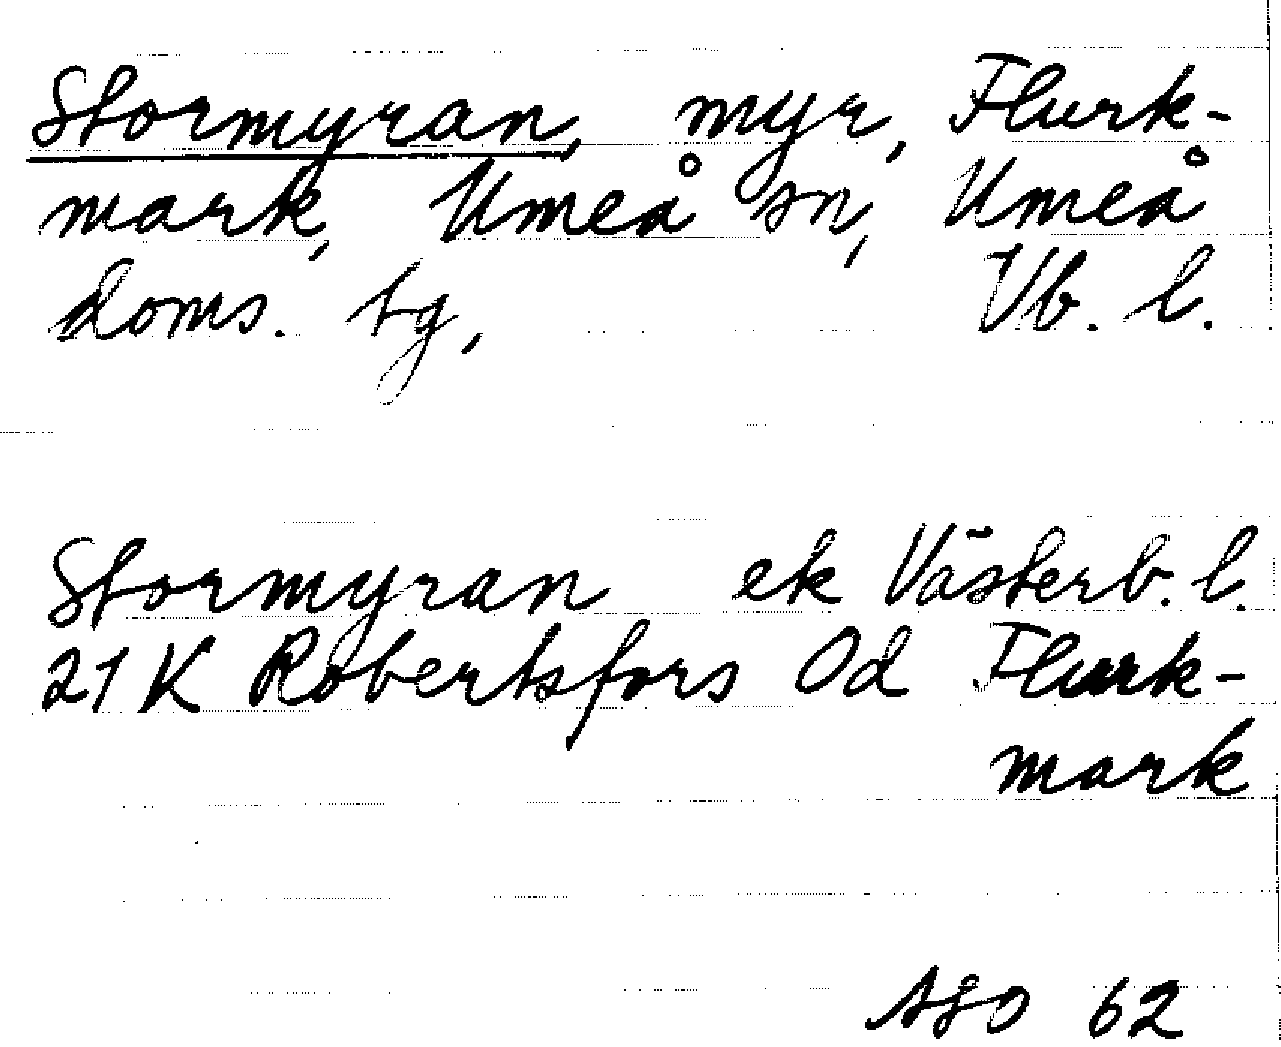 Stormyran, myr, Flurk-
mark, Umeå sn, Umeå
doms. tg, Vb. l.
Stormyran ek Västerb. l.
21K Robertsfors 0d Flurk-
mark
62